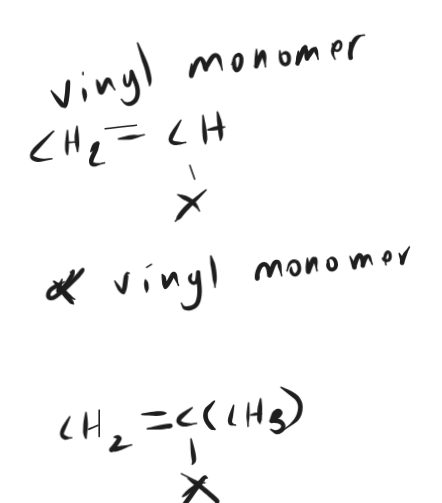 vinyl monomer
CH2 = CH
X
α vinyl monomer
CH2 = C(CH3)
X